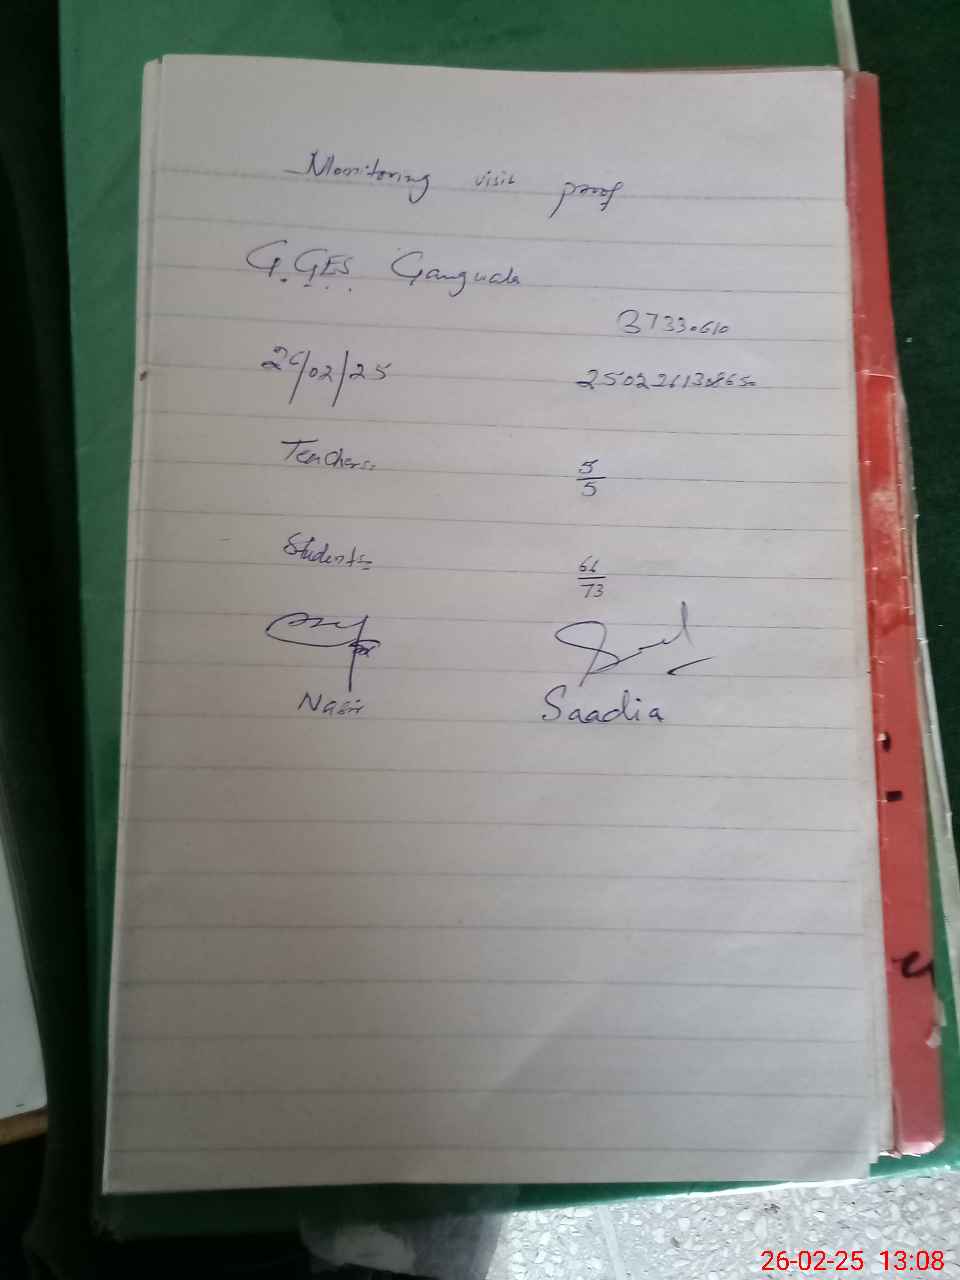 Monitoring visit proof
G.GES. Ganguala
37330610
26/02/25
Teachers:
5/5
Students:
66/73
Nasir
Saadia
26-02-25 13:08